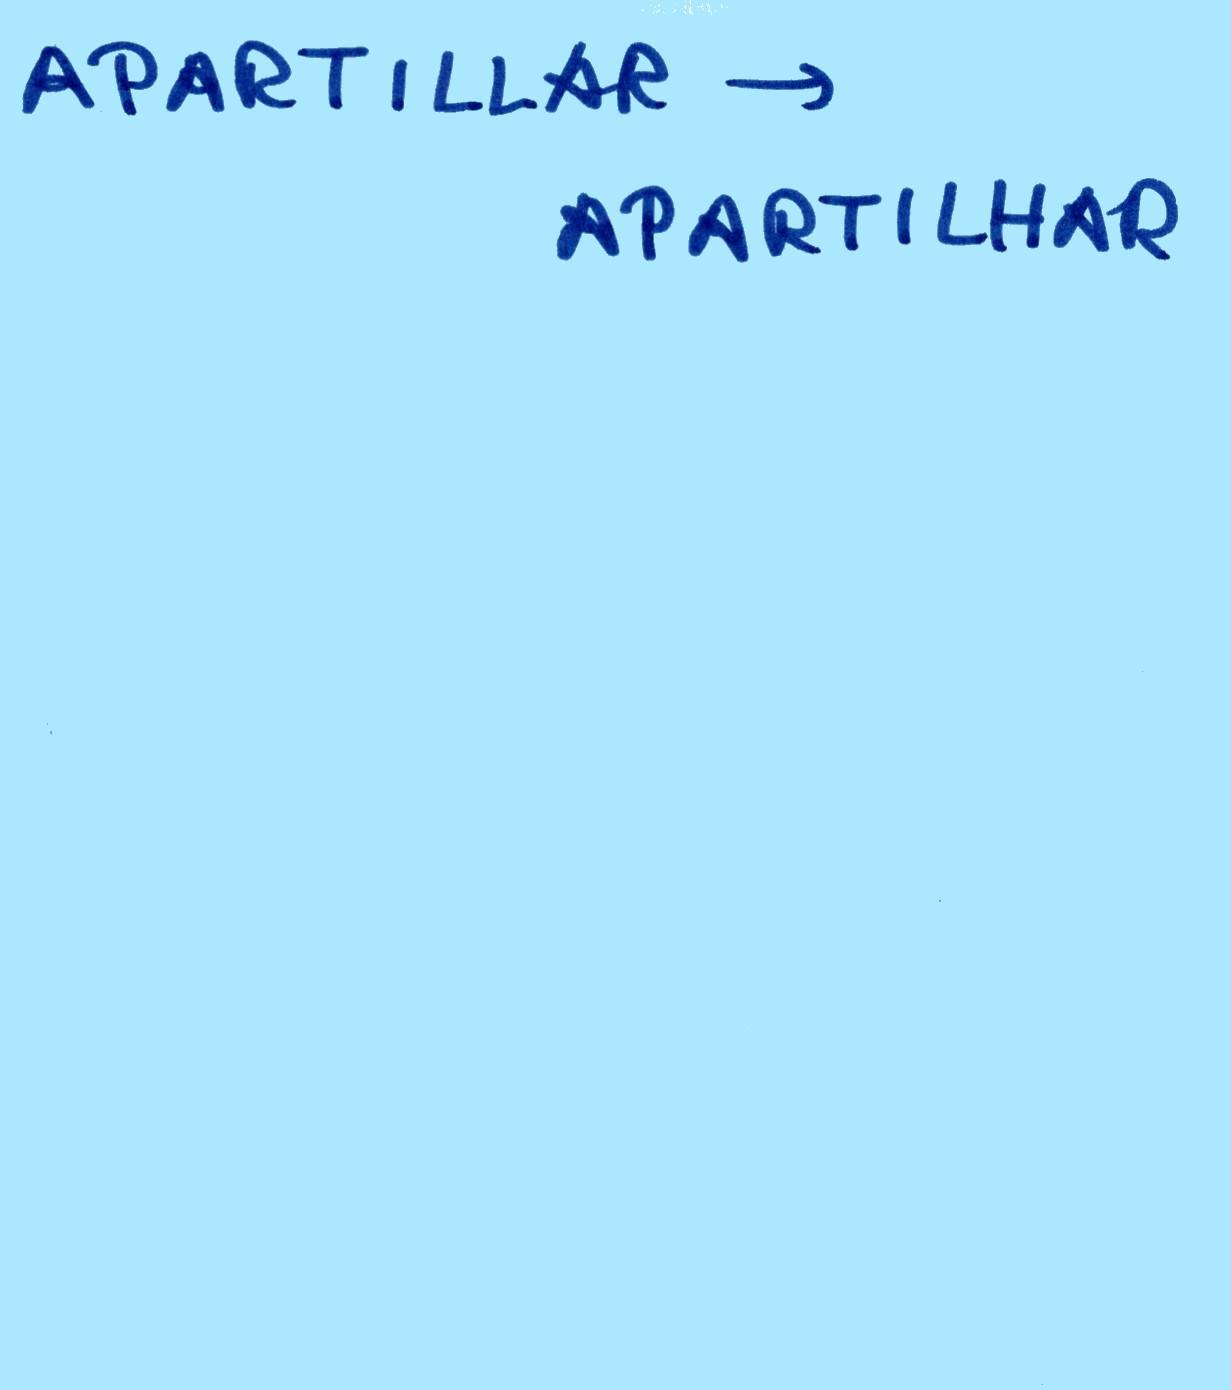 APARTILLAR →
APARTILHAR